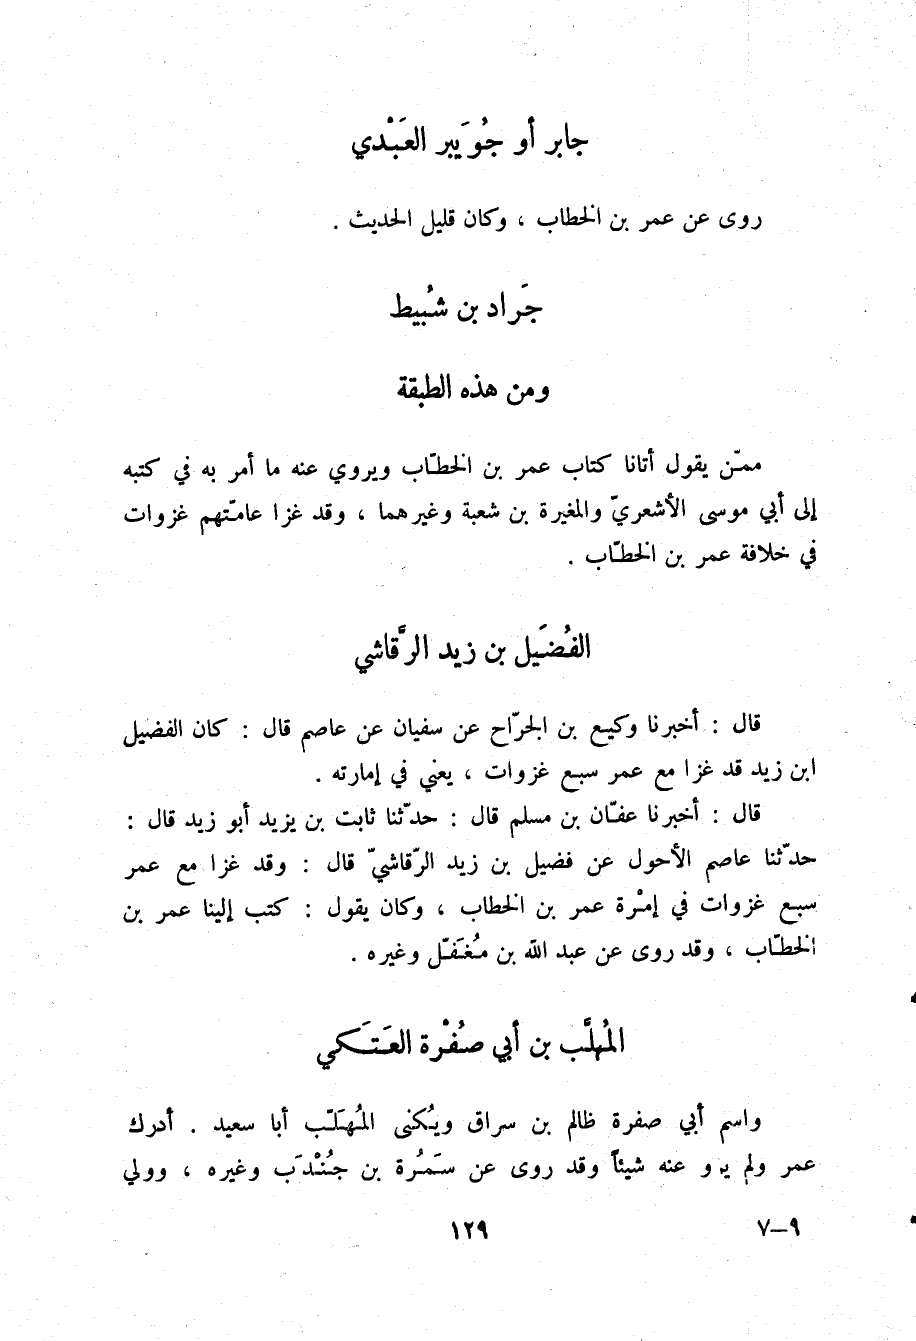 جابر أو جُوَيبر العَبْدي
روى عن عمر بن الخطاب ، وكان قليل الحديث .
جَراد بن شُبيط
ومن هذه الطبقة
ممّن يقول أتانا كتاب عمر بن الخطّاب ويروي عنه ما أمر به في كتبه
إلى أبي موسى الأشعريّ والمغيرة بن شعبة وغيرهما ، وقد غزا عامّتهم غزوات
في خلافة عمر بن الخطّاب .
الفُضَيل بن زيد الرَّقاشي
قال : أخبرنا وكيع بن الجرّاح عن سفيان عن عاصم قال : كان الفضيل
ابن زيد قد غزا مع عمر سبع غزوات ، يعني في إمارته .
قال : أخبرنا عفّان بن مسلم قال : حدّثنا ثابت بن يزيد أبو زيد قال :
حدّثنا عاصم الأحول عن فضيل بن زيد الرّقاشيّ قال : وقد غزا مع عمر
سبع غزوات في إمْرة عمر بن الخطاب ، وكان يقول : كتب إلينا عمر بن
الخطّاب ، وقد روى عن عبد الله بن مُغَفّل وغيره .
المُهلَّب بن أبي صُفْرة العَتَكي
واسم أبي صفرة ظالم بن سراق ويُكنى المُهَلّب أبا سعيد . أدرك
عمر ولم يرو عنه شيئاً وقد روى عن سَمُرة بن جُنْدَب وغيره ، وولي
٩–٧
١٢٩